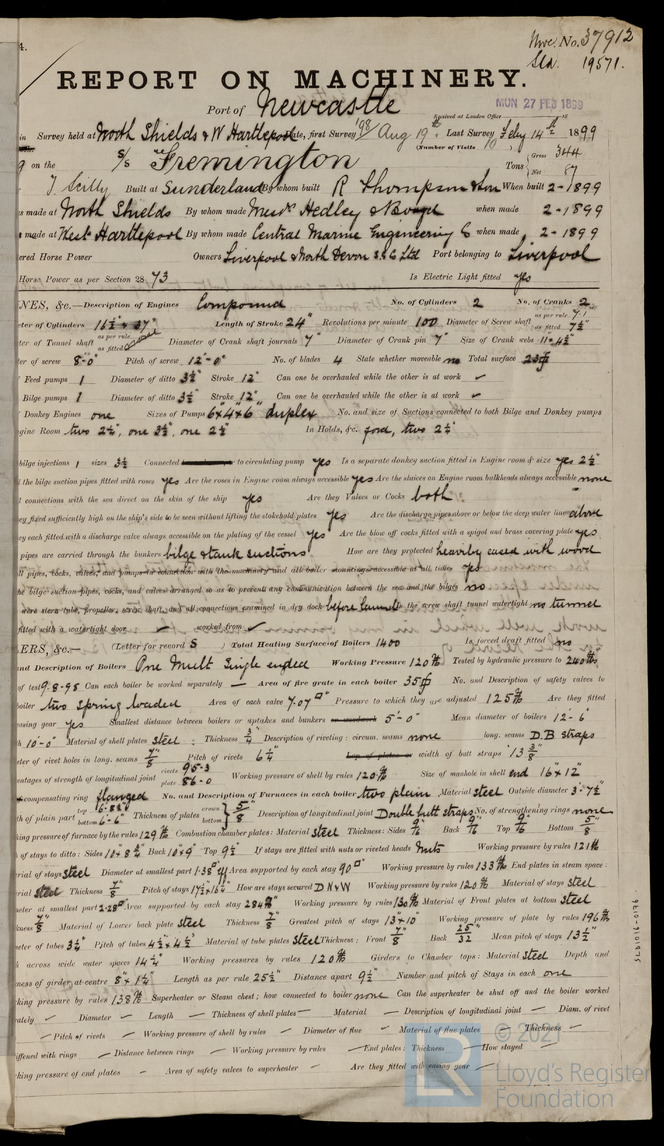 4.
Nwc. No. 37912
Sld. 19571.
REPORT ON MACHINERY.
Port of Newcastle
Received at London Office
MON 27 FEB 1899
in Survey held at North Shields & W Hartlepool Date, first Survey '98 Aug 19th Last Survey Feby 14th 1899
(Number of Visits 10)
on the S/S "Fremington Tons { Gross 344
Net 87
T. Scilly Built at Sunderland By whom built R Thompson & Son When built 2-1899
s made at North Shields By whom made Messrs Hedley & Boyd when made 2-1899
made at West Hartlepool By whom made Central Marine Engineering C when made 2-1899
ered Horse Power Owners Liverpool & North Devon S.S.C Ltd Port belonging to Liverpool
Horse Power as per Section 28 73 Is Electric Light fitted yes
NES, &c.—Description of Engines Compound No. of Cylinders 2 No. of Cranks 2
ter of Cylinders 16½ & 37" Length of Stroke 24" Revolutions per minute 100 Diameter of Screw shaft as per rule 7.1 as fitted 7½"
ter of Tunnel shaft as per rule as fitted Diameter of Crank shaft journals 7" Diameter of Crank pin 7" Size of Crank webs 11" 4½"
ter of screw 8-0" Pitch of screw 12'-0" No. of blades 4 State whether moveable no Total surface 23
Feed pumps 1 Diameter of ditto 3½" Stroke 12" Can one be overhauled while the other is at work ✓
Bilge pumps 1 Diameter of ditto 3½" Stroke 12" Can one be overhauled while the other is at work ✓
Donkey Engines one Sizes of Pumps 6"x4"x6" duplex No. and size of Suctions connected to both Bilge and Donkey pumps
gine Room two 2½", one 3½", one 2½" In Holds, &c. ford, two 2½"
bilge injections 1 sizes 3½ Connected to circulating pump yes Is a separate donkey suction fitted in Engine room & size yes 2½"
l the bilge suction pipes fitted with roses yes Are the roses in Engine room always accessible yes Are the sluices on Engine room bulkheads always accessible none
l connections with the sea direct on the skin of the ship yes Are they Valves or Cocks both
ey fixed sufficiently high on the ship's side to be seen without lifting the stokehold plates yes Are the discharge pipes above or below the deep water line above
ey each fitted with a discharge valve always accessible on the plating of the vessel yes Are the blow off cocks fitted with a spigot and brass covering plate yes
pipes are carried through the bunkers bilge & tank suctions How are they protected heavily cased with wood
ll pipes, cocks, valves, and pumps in connection with the machinery and all boiler mountings accessible at all times yes
he bilge suction pipes, cocks, and valves arranged so as to prevent any communication between the sea and the bilges no
were stern tube, propeller, screw shaft, and all connections examined in dry dock before launch Is the screw shaft tunnel watertight no tunnel
fitted with a watertight door ✓ worked from ✓
ERS, &c.— (Letter for record S Total Heating Surface of Boilers 1400 Is forced draft fitted no
and Description of Boilers One Mult Single ended Working Pressure 120 lb Tested by hydraulic pressure to 240 lbs
of test 9.8-98 Can each boiler be worked separately — Area of fire grate in each boiler 35 No. and Description of safety valves to
boiler two Spring loaded Area of each valve 7.07 Pressure to which they are adjusted 125 lb Are they fitted
easing gear yes Smallest distance between boilers or uptakes and bunkers 5'-0" Mean diameter of boilers 12'-6"
th 10'-0" Material of shell plates Steel Thickness ¾" Description of riveting: circum. seams none long. seams D.B straps
ter of rivet holes in long. seams 7/8" Pitch of rivets 6¼" Lap of plates or width of butt straps 13 3/8"
entages of strength of longitudinal joint rivets 95.3 plate 86.0 Working pressure of shell by rules 120 lb Size of manhole in shell end 16"x12"
compensating ring flanged No. and Description of Furnaces in each boiler two plain Material steel Outside diameter 3'-7½"
th of plain part bottom 6-6" Thickness of plates crown bottom } 5/8" Description of longitudinal joint Double butt straps No. of strengthening rings none
king pressure of furnace by the rules 129 lb Combustion chamber plates: Material steel Thickness: Sides 9/16" Back 9/16" Top 9/16" Bottom 5/8"
h of stays to ditto: Sides 10"x8¾" Back 10"x9" Top 9½" If stays are fitted with nuts or riveted heads Nuts Working pressure by rules 121 lb
rial of stays Steel Diameter at smallest part 1.38" Area supported by each stay 90 Working pressure by rules 133 lb End plates in steam space:
rial Steel Thickness 7/8" Pitch of stays 17½"x16½" How are stays secured D N & W Working pressure by rules 120 lb Material of stays Steel
eter at smallest part 2.28" Area supported by each stay 284 Working pressure by rules 130 lb Material of Front plates at bottom Steel
kness 7/8" Material of Lower back plate Steel Thickness 7/8" Greatest pitch of stays 13"x10" Working pressure of plate by rules 196 lb
eter of tubes 3¼" Pitch of tubes 4½"x4½" Material of tube plates Steel Thickness: Front 7/8" Back 25/32" Mean pitch of stays 13½"
h across wide water spaces 14¼" Working pressures by rules 120 lb Girders to Chamber tops: Material Steel Depth and
ness of girder at centre 8"x1¼" Length as per rule 25½" Distance apart 9½" Number and pitch of Stays in each one
king pressure by rules 138 lb Superheater or Steam chest; how connected to boiler none Can the superheater be shut off and the boiler worked
rately — Diameter — Length — Thickness of shell plates — Material — Description of longitudinal joint — Diam. of rivet
— Pitch of rivets — Working pressure of shell by rules — Diameter of flue — Material of flue plates — Thickness —
ffened with rings — Distance between rings — Working pressure by rules — End plates: Thickness — How stayed —
king pressure of end plates — Area of safety valves to superheater — Are they fitted with easing gear —
SLD1016-0176
© 2021
LR
Lloyd's Register
Foundation